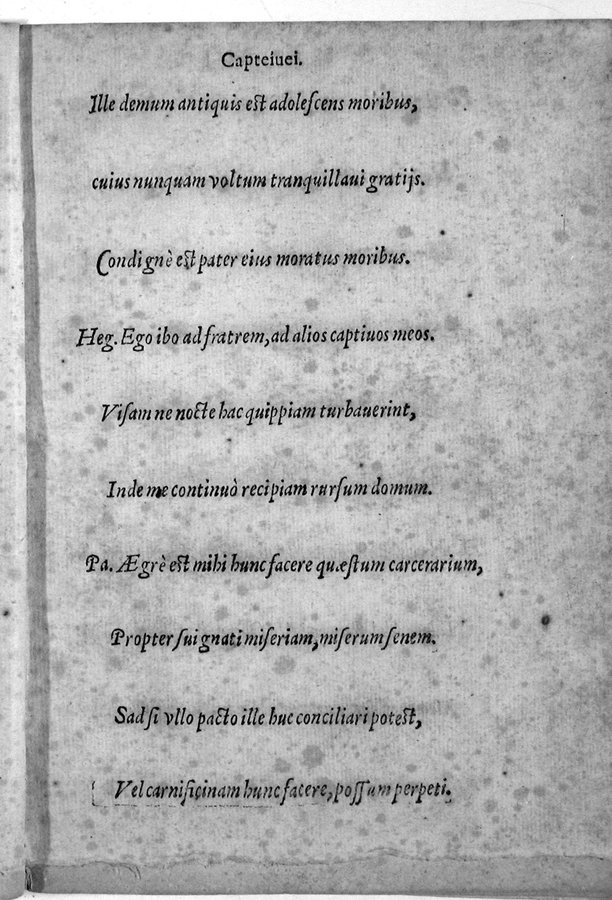 Capteiuei.
Ille demum antiquis est adoleſcens moribus,
cuius nunquam voltum tranquillaui gratijs.
Condignè est pater eius moratus moribus.
Heg. Ego ibo ad fratrem, ad alios captiuos meos.
Viſam ne nocte hac quippiam turbauerint,
Inde me continuò recipiam rurſum domum.
Pa. Ægrè est mihi hunc facere quæſtum carcerarium,
Propter ſui gnati miſeriam, miſerum ſenem.
Sad ſi vllo pacto ille huc conciliari potest,
Vel carnificinam hunc facere, poſſum perpeti.